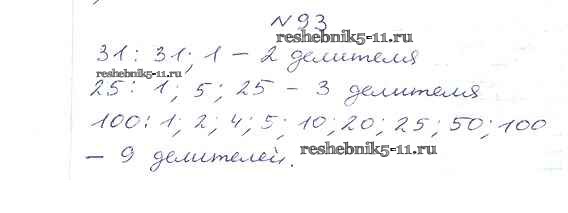 №93
reshebnik5-11.ru
31: 31; 1 – 2 делителя
reshebnik5-11.ru
25: 1; 5; 25 – 3 делителя
100: 1; 2; 4; 5; 10; 20; 25; 50; 100
– 9 делителей.
reshebnik5-11.ru